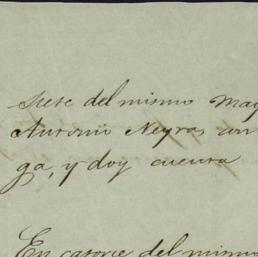 siete del mismo May
Antonio Negros con
ga, y doy cuenta
En catorce del mismo